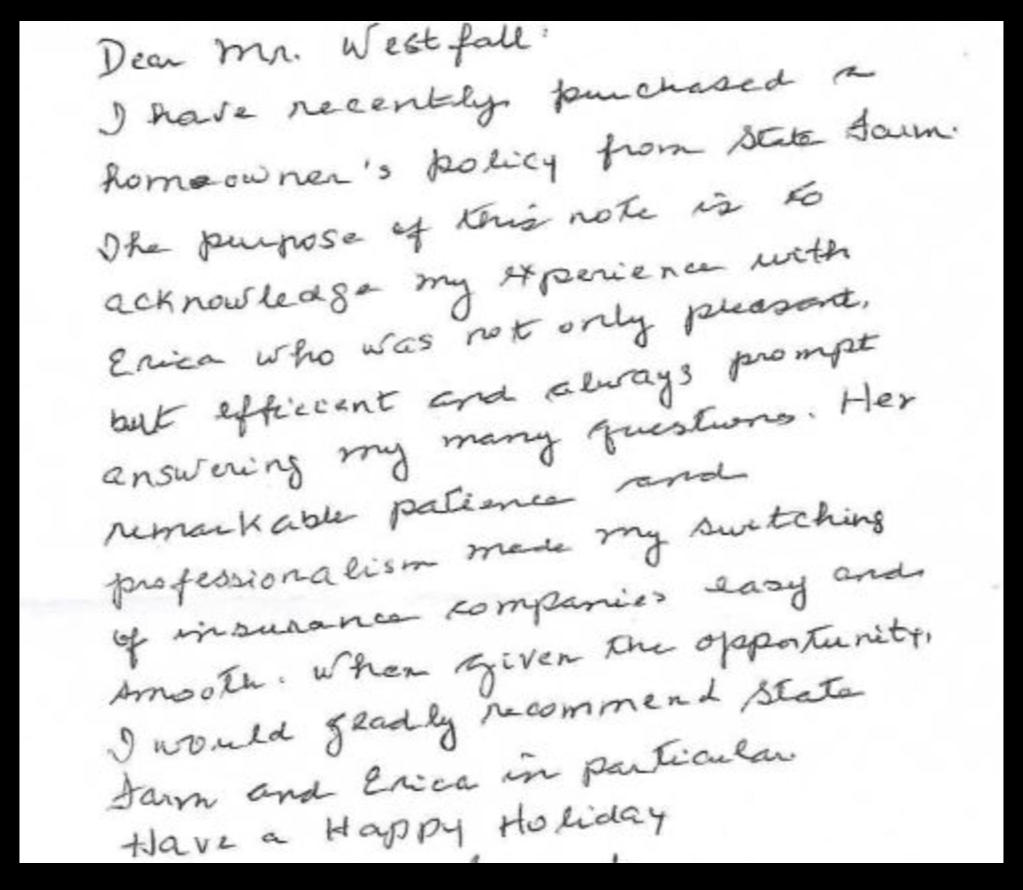 Dear Mr. Westfall:
I have recently purchased a
homeowner's policy from State Farm.
The purpose of this note is to
acknowledge my experience with
Erica who was not only pleasant,
but efficient and always prompt
answering my many questions. Her
remarkable patience and
professionalism made my switching
of insurance companies easy and
smooth. When given the opportunity,
I would gladly recommend State
Farm and Erica in particular.
Have a Happy Holiday